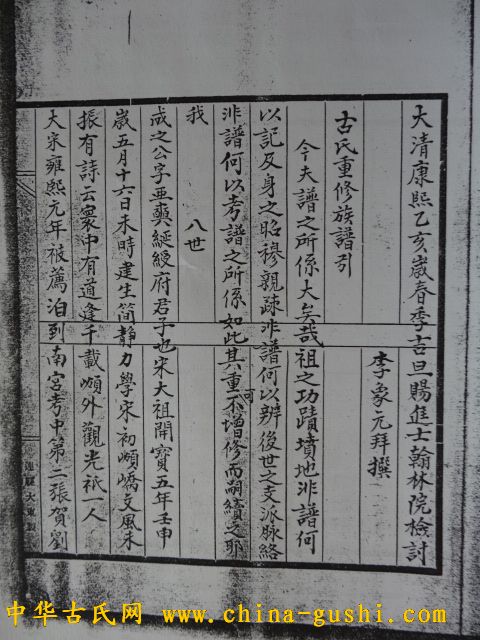 大清康熙乙亥歲春季吉旦賜進士翰林院檢討
李象元拜撰
古氏重修族譜引
今夫譜之所係大矣哉祖之功蹟墳地非譜何
以記及身之昭穆親疎非譜何以辨後世之支派脉絡
非譜何以考譜之所係如此其重何不增修而嗣續之耶
我
八世
成之公字亜奭延綬府君子也宋大祖開寶五年壬申
歲五月十六日未時建生簡靜力學宋初頫嶠文風未
振有詩云寰中有道逢千載頫外觀光祇一人
大宋雍熙元年被薦泊到南宮考中第二張賀劉
中华古氏网 www.china-gushi.com